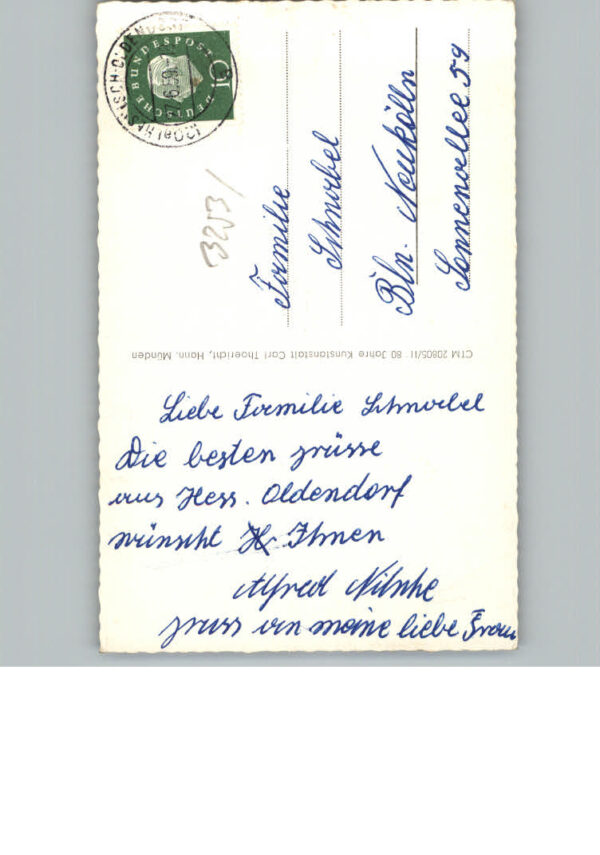 DEUTSCHE BUNDESPOST
(20a) HESSISCH-OLDENDORF
6.59
3253/
Familie
Schnabel
Bln. Neukölln
Sonnenallee 59
CTM 20805/11 80 Jahre Kunstanstalt Carl Thoericht, Hann. Münden
Liebe Familie Schnabel
Die besten grüsse
aus Hess. Oldendorf
wünscht Ihnen
Alfred
gruss an meine liebe Frau